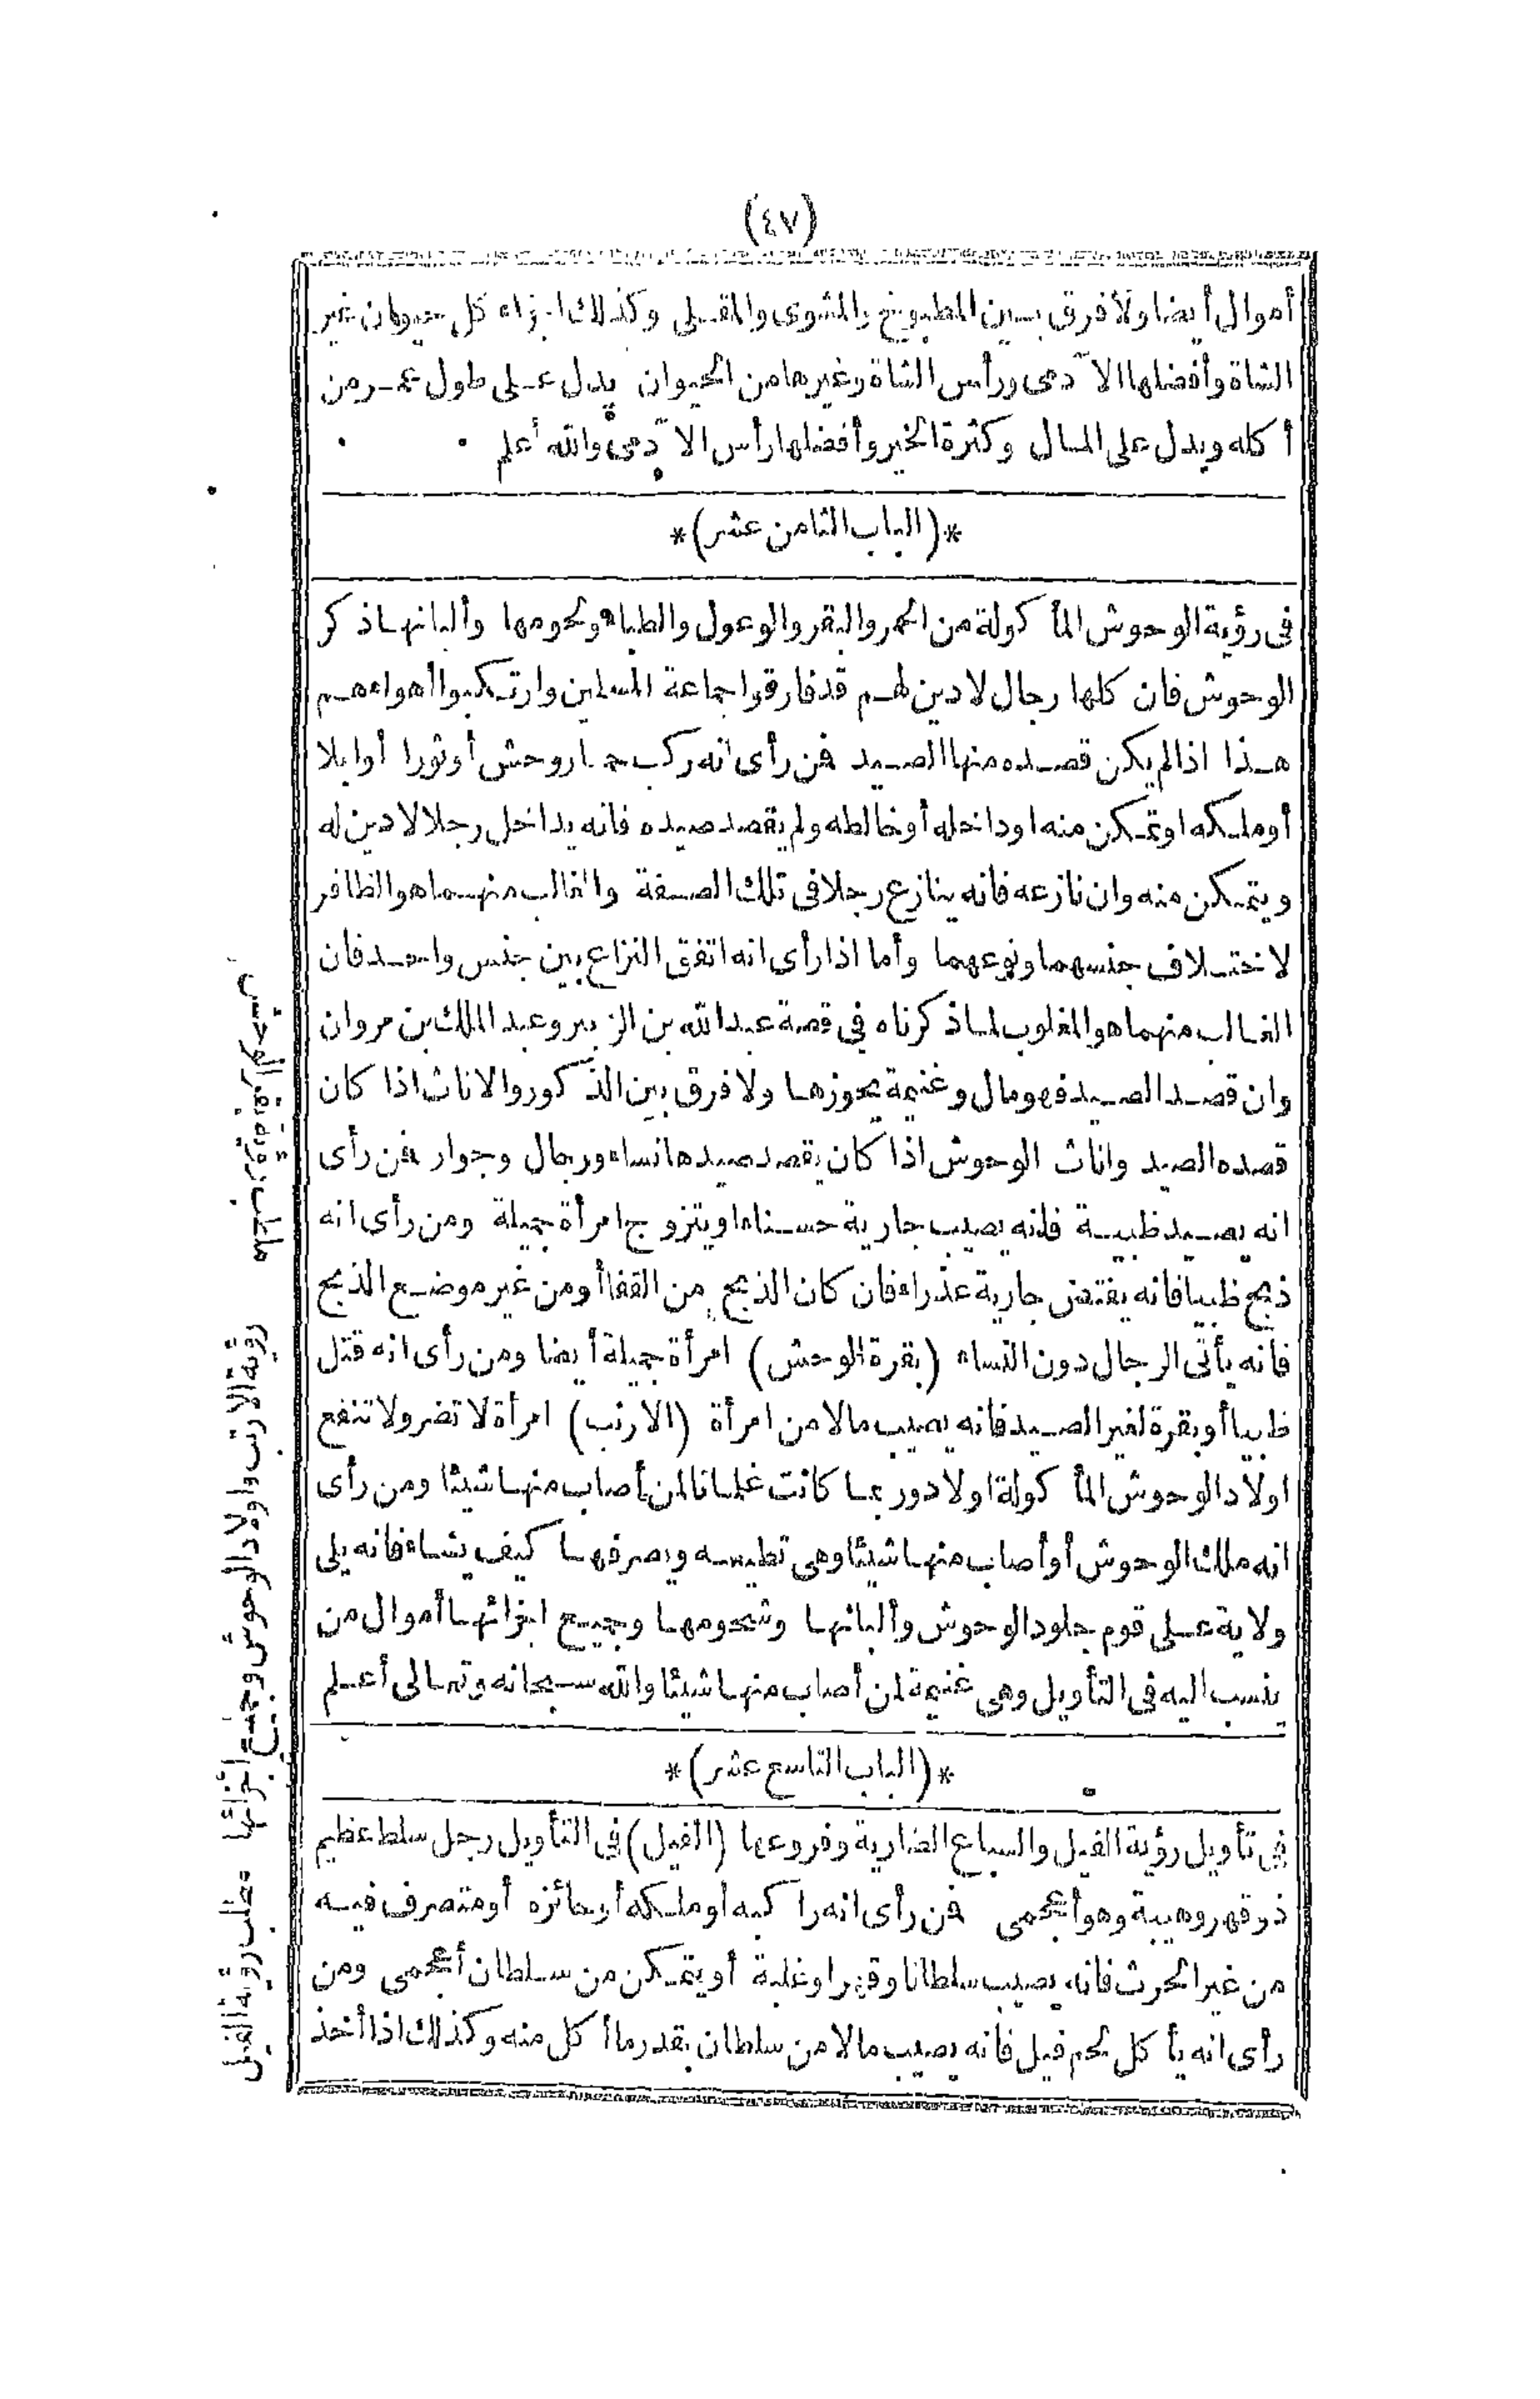 (٤٧)
أموال أيضا ولا فرق بين المطبوخ والمشوى والمقلى وكذلك اجزاء كل حيوان غير
الشاة وأفضلها الآدمى ورأس الشاة وغيرها من الحيوان يدل على طول عمر من
أكله ويدل على المال وكثرة الخير وأفضلها رأس الآدمى والله أعلم
*(الباب الثامن عشر)*
فى رؤية الوحوش المأكولة من الحمر والبقر والوعول والظباء ولحومها وألبانها ذكر
الوحوش فان كلها رجال لا دين لهم قد فارقوا جماعة المسلمين وارتكبوا أهواءهم
هذا اذا لم يكن قصده منها الصيد فمن رأى انه ركب حمار وحش أو ثورا أو ابلا
أو ملكه او تمكن منه او داخله أو خالطه ولم يقصد صيده فانه يداخل رجلا لا دين له
ويتمكن منه وان نازعه فانه ينازع رجلا فى تلك الصفة والغالب منهما هو الظافر
لاختلاف جنسهما ونوعهما وأما اذا رأى انه اتفق النزاع بين جنس واحد فان
الغالب منهما هو المغلوب لما ذكرناه فى قصة عبد الله بن الزبير وعبد الملك بن مروان
وان قصد الصيد فهو مال وغنيمة يحوزها ولا فرق بين الذكور والاناث اذا كان
قصده الصيد واناث الوحوش اذا كان يقصد صيدها نساء ورجال وجوار فمن رأى
انه يصيد ظبية فانه يصيب جارية حسناء او يتزوج امرأة جميلة ومن رأى انه
ذبح ظبيا فانه يفتض جارية عذراء فان كان الذبح من القفا أو من غير موضع الذبح
فانه يأتى الرجال دون النساء (بقرة الوحش) امرأة جميلة أيضا ومن رأى انه قتل
ظبيا أو بقرة لغير الصيد فانه يصيب مالا من امرأة (الارنب) امرأة لا تضر ولا تنفع
اولاد الوحوش المأكولة اولاد وربما كانت غلمانا لمن أصاب منها شيئا ومن رأى
انه ملك الوحوش أو أصاب منها شيئا وهى تطيعه ويصرفها كيف يشاء فانه يلى
ولاية على قوم جلود الوحوش وألبانها وشحومها وجميع اجزائها أموال من
ينسب اليه فى التأويل وهى غنيمة لمن أصاب منها شيئا والله سبحانه وتعالى أعلم
*(الباب التاسع عشر)*
فى تأويل رؤية الفيل والسباع الضارية وفروعها (الفيل) فى التأويل رجل سلط عظيم
ذو قهر وهيبة وهو أعجمى فمن رأى انه راكبه أو ملكه أو حائزه أو متصرف فيه
من غير الحرث فانه يصيب سلطانا وقهرا وغلبة أو يتمكن من سلطان أعجمى ومن
رأى انه يأكل لحم فيل فانه يصيب مالا من سلطان بقدر ما أكل منه وكذلك اذا أخذ
مطلب رؤية بقرة الوحش
رؤية الارنب واولاد الوحوش وجميع اجزائها
مطلب رؤية الفيل